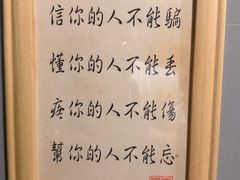 信你的人不能騙
懂你的人不能丢
疼你的人不能傷
幫你的人不能忘